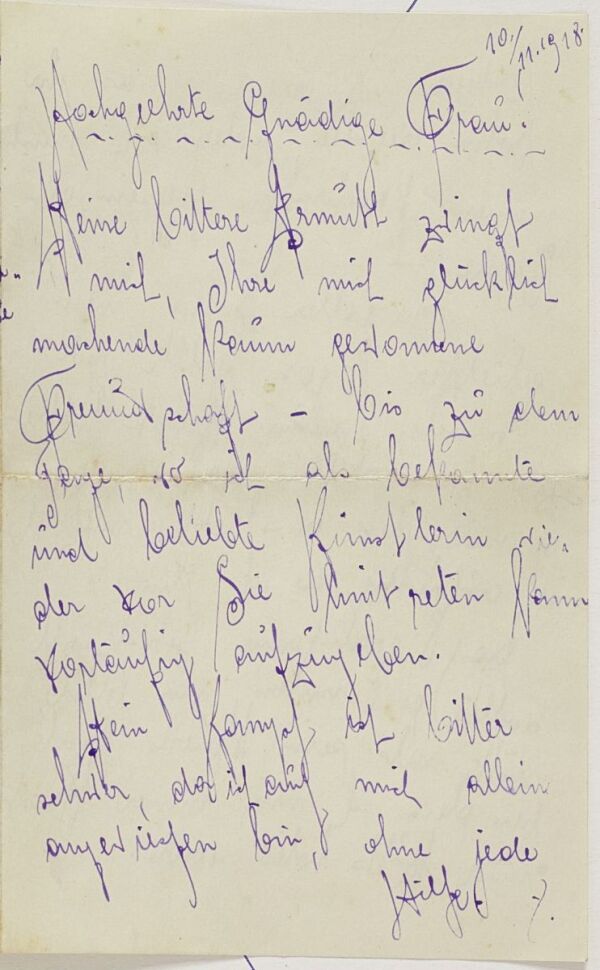 10./11.1918.
Hochgeehrte Gnädige Frau!
Meine bittere Armuth zwingt
mich, Ihre mich glücklich
machende kaum gewonnene
Freundschaft – bis zu dem
Tage, wo ich als bekannte
und beliebte Künstlerin wie-
der vor Sie hintreten kann
vorläufig aufzugeben.
Mein Kampf ist bitter
schwer, da ich auf mich allein
angewießen bin, ohne jede
Hilfe.